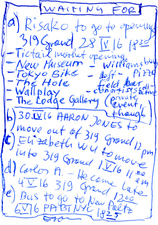 WAITING FOR
a) Risako to go to opening
319 Grand 28 IV 16 18:00
Tictail market opening
- New Museum - Williamsburg
- Tokyo Bike - loft - Pizza
- The Hole
- Wallplay
- The Lodge Gallery (private event though)
b) 30 IV 16 AARON JONES to
move out of 319 Grand 11 pm
c) Elizabeth WU to move
into 319 Grand 1 V 16 11
d) Carlos A - He came late
4 V 16 319 Grand
e) Bus to go to New Paltz
6 V 16 PABT NY